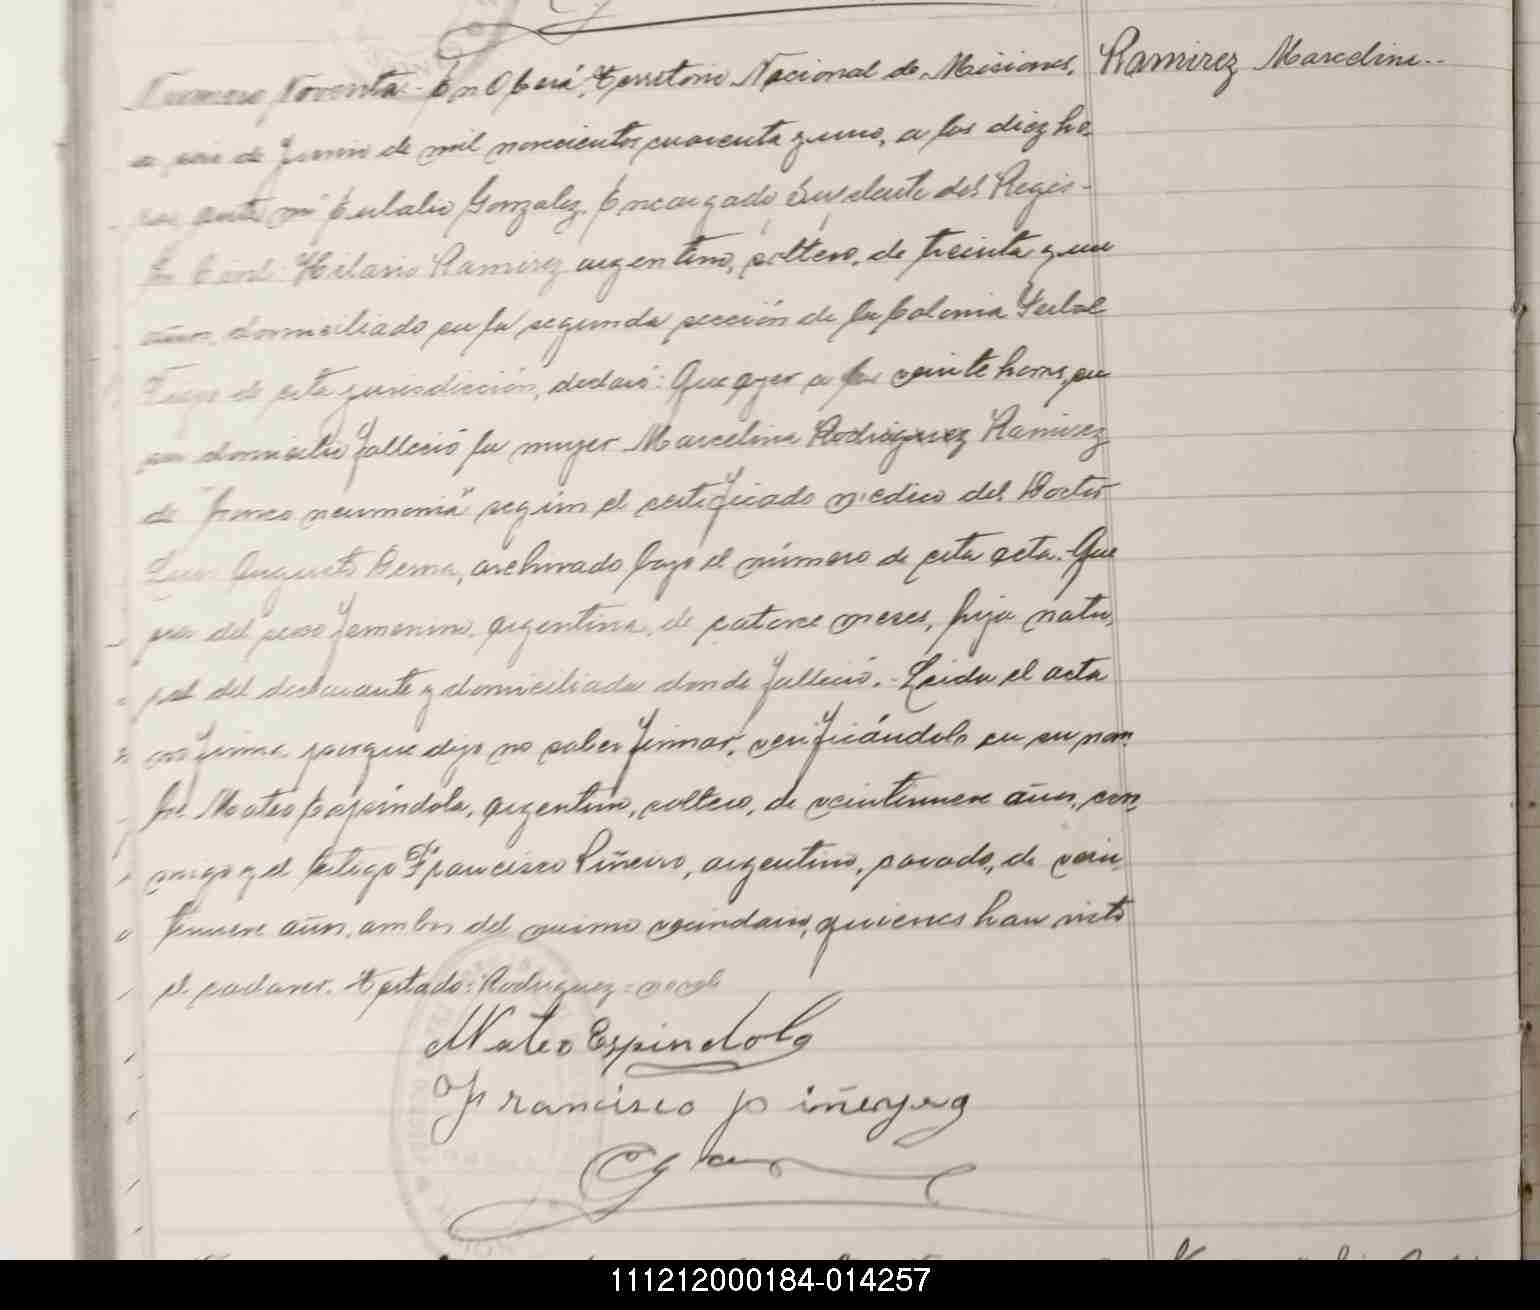 Ramirez Marcelina.-
Numero Noventa - En Oberá, Territorio Nacional de Misiones,
a seis de Junio de mil novecientos cuarenta y uno, a las diez ho-
ras, ante mi Eulalio Gonzalez, Encargado Suplente del Regis-
tro Civil: Hilario Ramirez argentino, soltero, de treinta y un
años, domiciliado en la segunda sección de la Colonia Yerbal
de esta jurisdicción, declaró: Que ayer a las veinte horas, en
su domicilio falleció la mujer Marcelina Rodriguez Ramirez
de "bronco neumonia" según el certificado medico del Doctor
Luis Augusto, archivado bajo el número de esta acta. Que
era del sexo femenino, argentina, de catorce meses, hija natu-
ral del declarante y domiciliada donde falleció.- Leida el acta
no firma porque dijo no saber firmar, verificándolo en su nom-
bre Mateo Espíndola, argentino, soltero, de veintinueve años, con-
migo y el testigo Francisco Piñeiro, argentino, casado, de vein-
tinueve años, ambos del mismo vecindario, quienes han visto
el cadaver. Testado: Rodriguez = no vale
Mateo Espindola
Francisco piñeyro
111212000184-014257